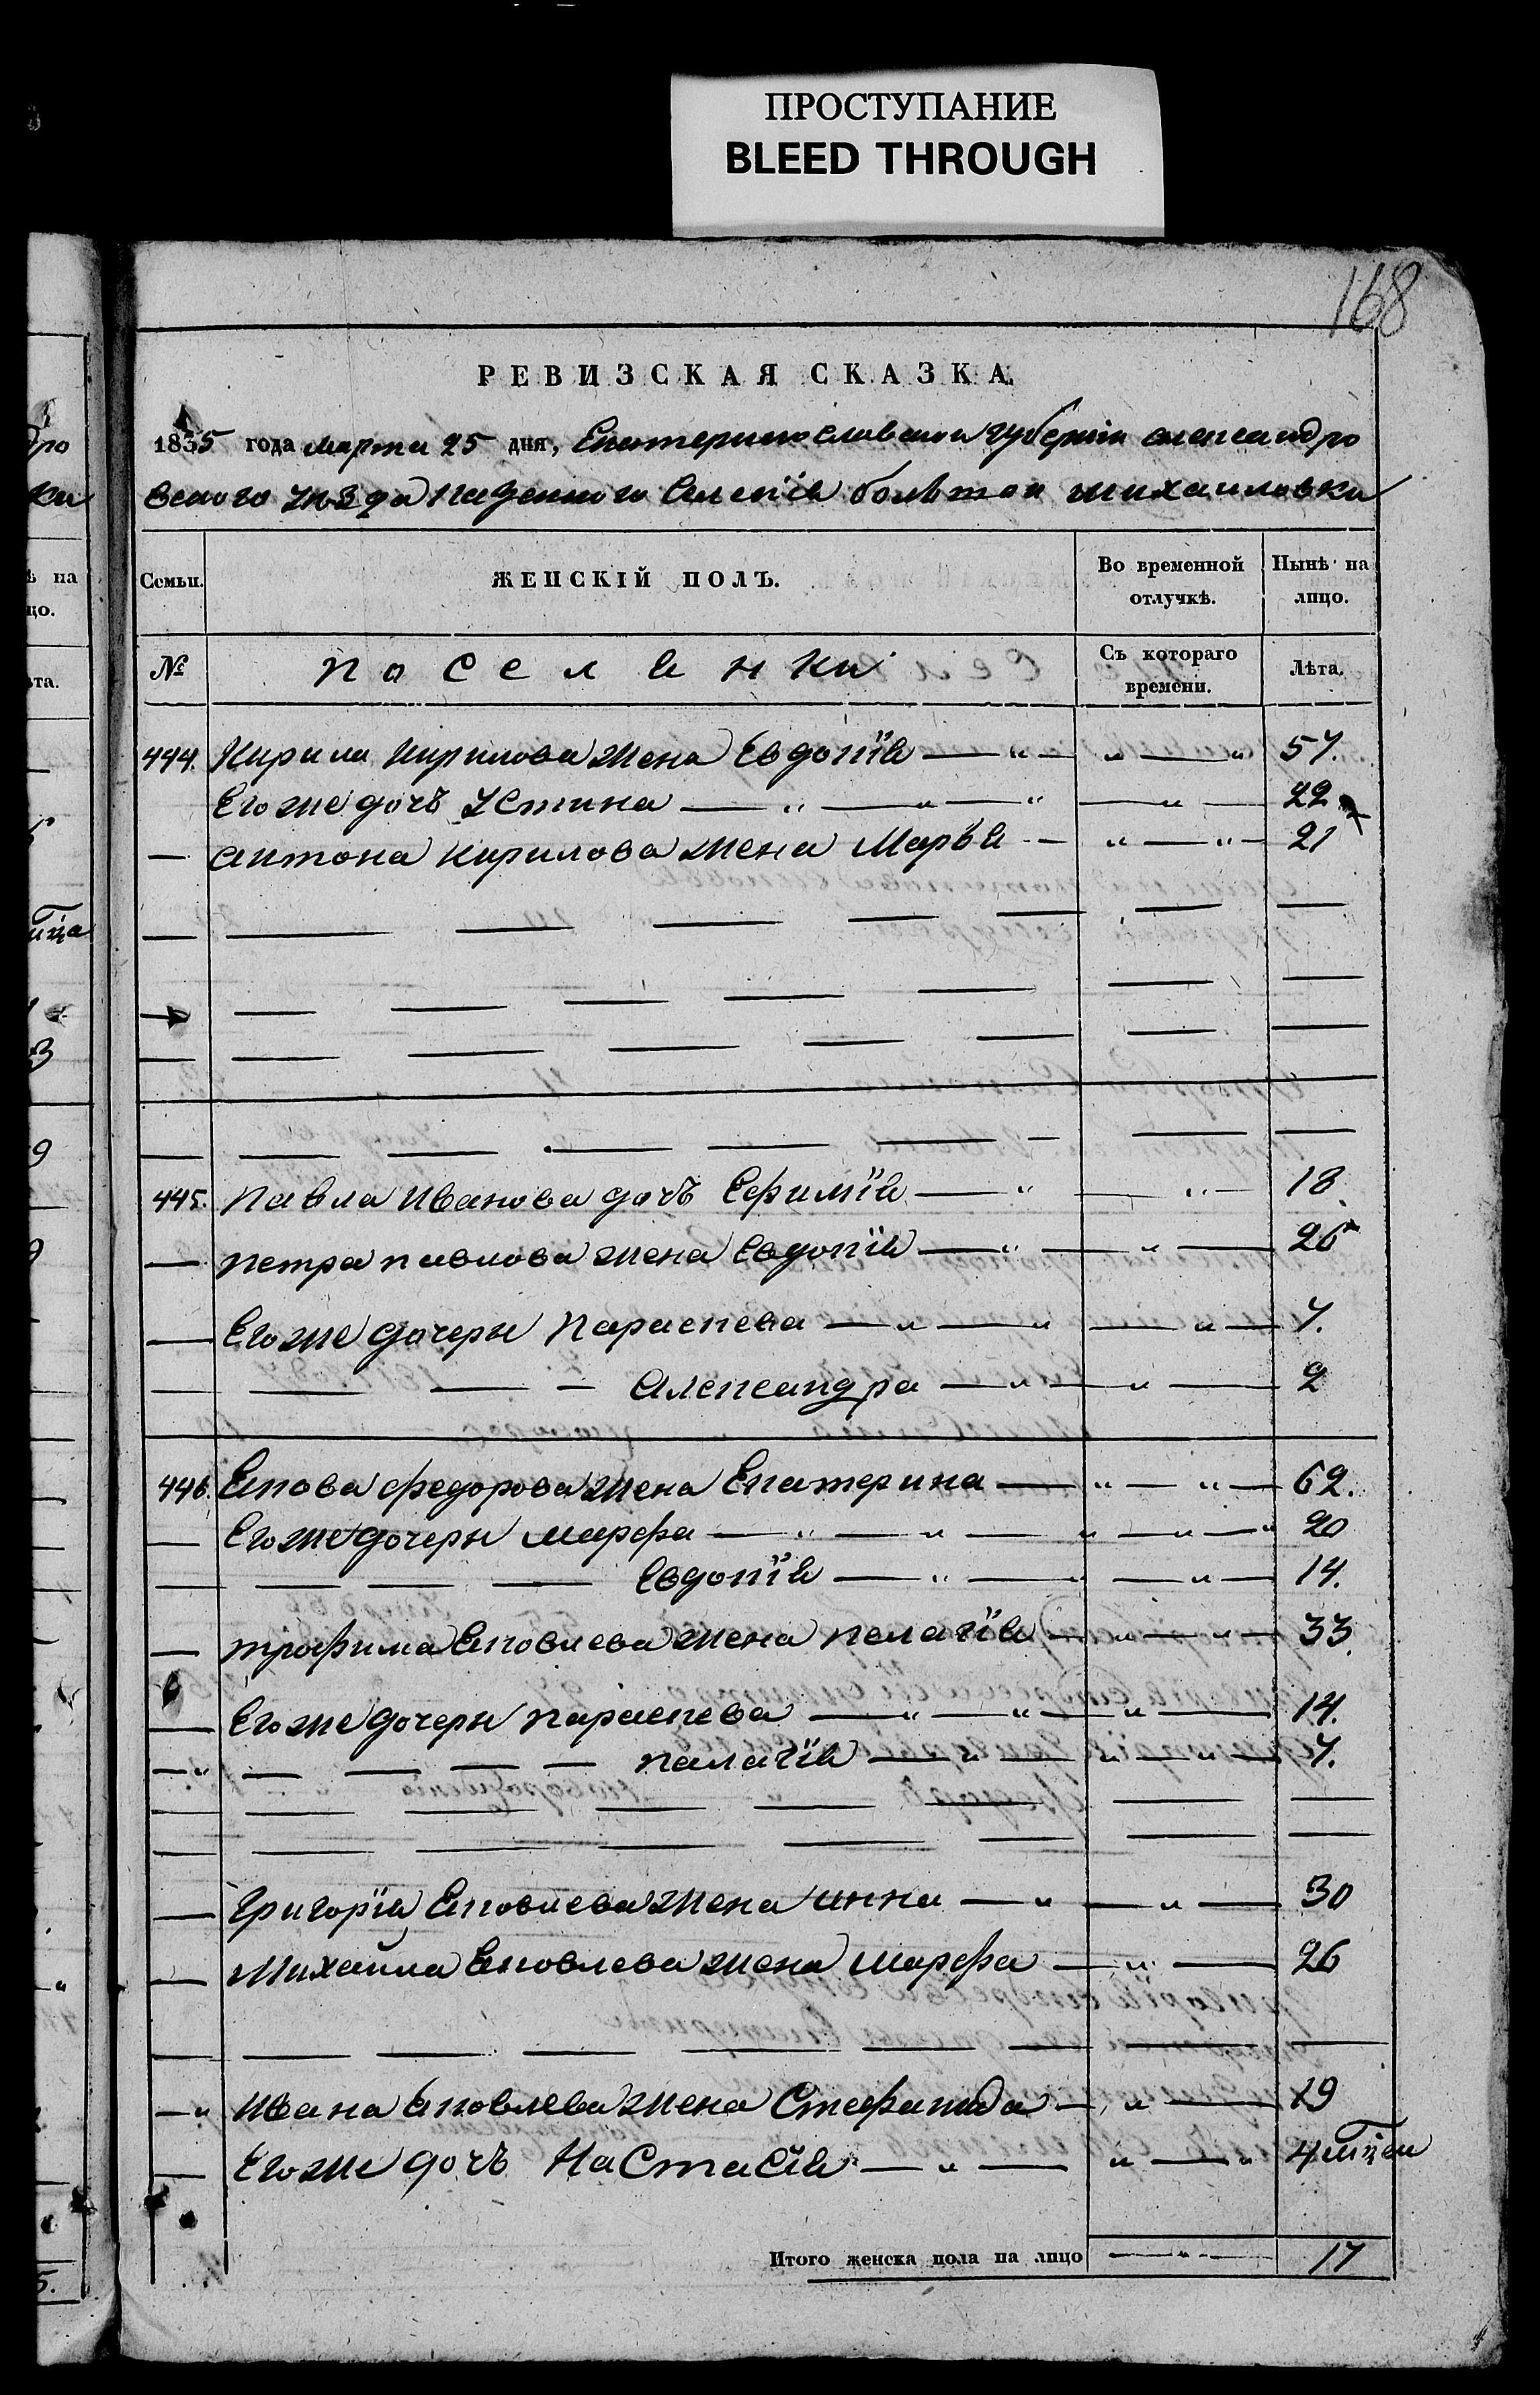 ПРОСТУПАНИЕ
BLEED THROUGH
168
РЕВИЗСКАЯ СКАЗКА.
1835 года марта 25 дня, Екатеринославской губернiи александро
вского уѣзда казенного Селенiя большой михайловки
Семьи. ЖЕНСКІЙ ПОЛЪ. Во временной отлучкѣ. Нынѣ на лицо.
№ поселянки Съ котораго времени. Лѣта.
444. Кирила Кирилова жена Евдокiя — " — " — " 57.
Его же дочь Устина — " — " — " — " — 22
— антона кирилова жена Марья — " — " — 21
445. Павла Иванова дочь Ефимiя — " — " — 18
— петра павлова жена Евдокiя — " — " — 26
— Его же дочери Параскева — " — " — " — 7.
— — — — Александра — " — " — 2
446. Якова федорова жена Екатерина — " — " — 62.
— Его же дочери марфа — " — " — " — " — " 20
— — — — Евдокiя — " — " — " — 14.
— трофима Яковлева жена пелагiя — " — " — 33.
— Его же дочери параскева — " — " — " — 14.
— " — — — — палагiя — " — " — " — 7.
— Григорiя Яковлева жена анна — " — " — 30
— Михайла Яковлева жена марфа — " — 26
— " Ивана Яковлева жена Стефанида — " — 19
— Его же дочь Настасiя — " — " — " 4 мца
Итого женска пола на лицо — " — 17